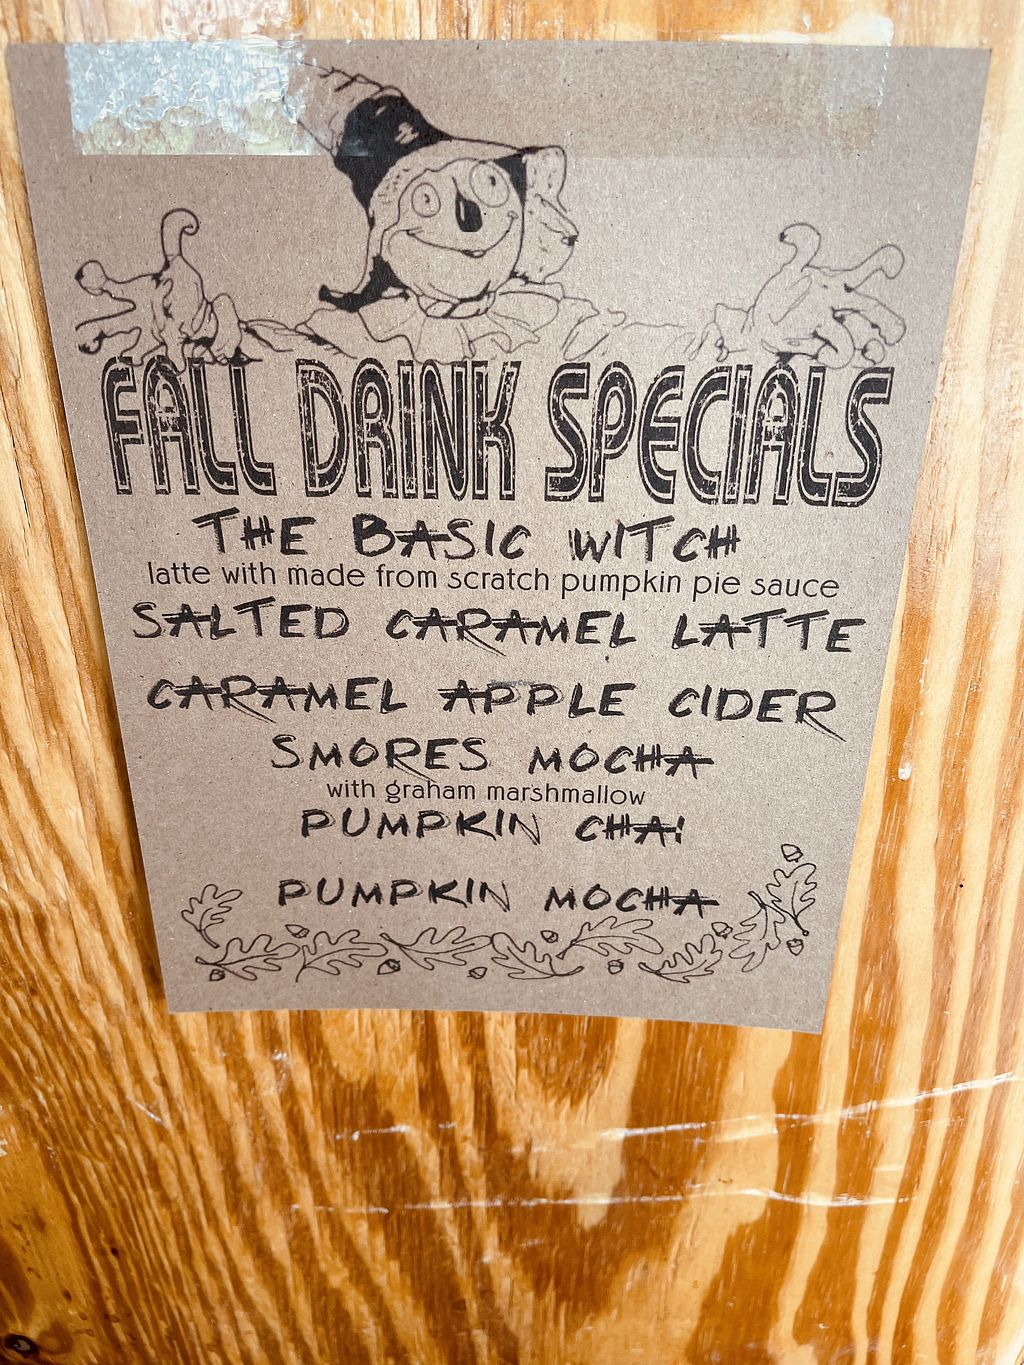 FALL DRINK SPECIALS
THE BASIC WITCH
latte with made from scratch pumpkin pie sauce
SALTED CARAMEL LATTE
CARAMEL APPLE CIDER
SMORES MOCHA
with graham marshmallow
PUMPKIN CHAI
PUMPKIN MOCHA